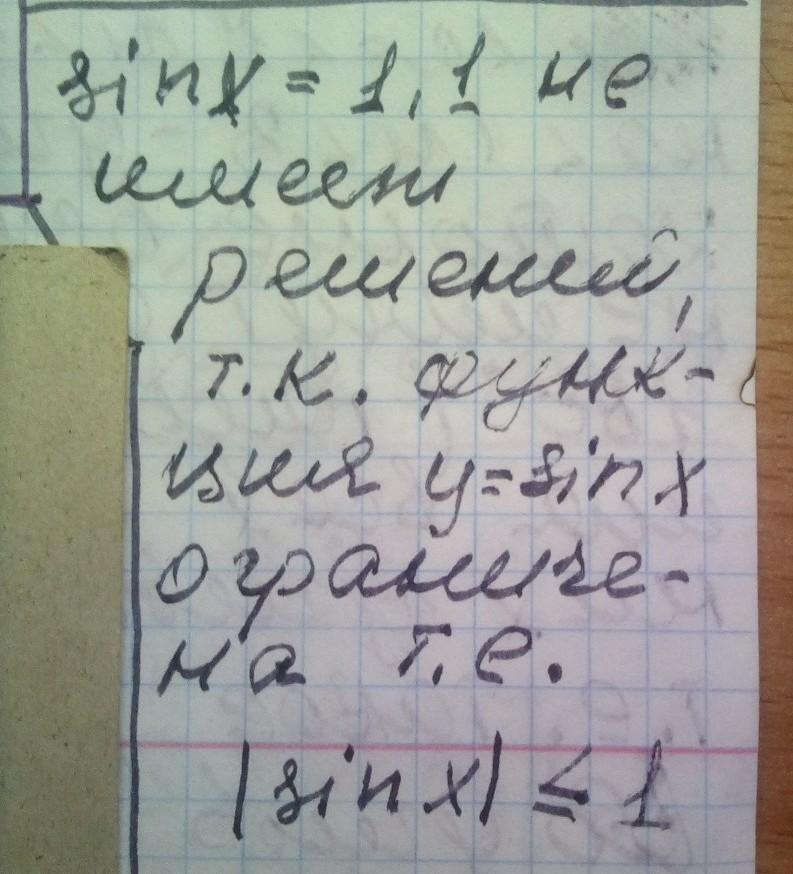 sinx = 1,1 не
имеет
решений,
т.к. функ-
ция y=sinx
ограниче-
на т.е.
|sinx| ≤ 1